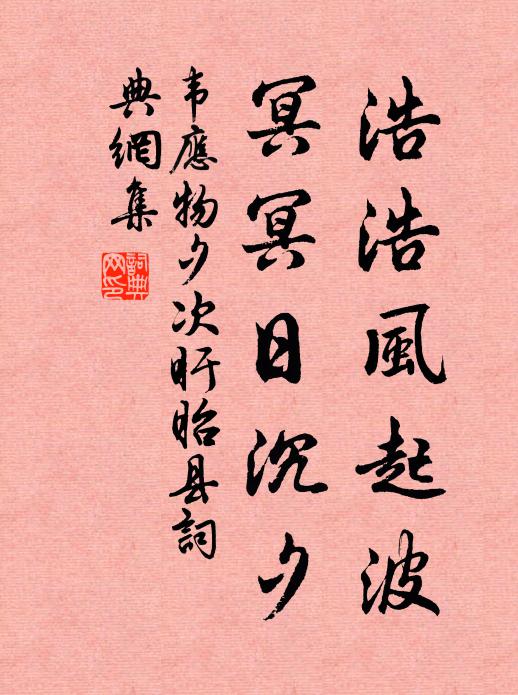 浩浩風起波
冥冥日沉夕
韦應物夕次盱眙县詞
典網集
詞典网印